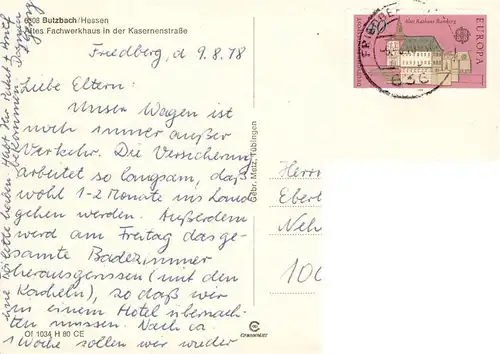 6308 Butzbach/Hessen
Altes Fachwerkhaus in der Kasernenstraße
Friedberg, d. 9.8.78
Liebe Eltern:
Unser Wagen ist
noch immer außer
Verkehr. Die Versicherung
arbeitet so langsam, daß
wohl 1-2 Monate ins Land
gehen werden. Außerdem
wird am Freitag das ge-
samte Badezimmer
herausgerissen (mit den
Kacheln), so daß wir
in einem Hotel übernach-
ten müssen. Nach ca.
1 Woche sollen wir wieder
eine Toilette haben. Habt Ihr Paket + Brief
bekommen?
Of 1034 H 80 CE
Gebr. Metz, Tübingen
CHROMOLUX
Herrn
Eberl
Neh
100
Altes Rathaus Bamberg
EUROPA
6367